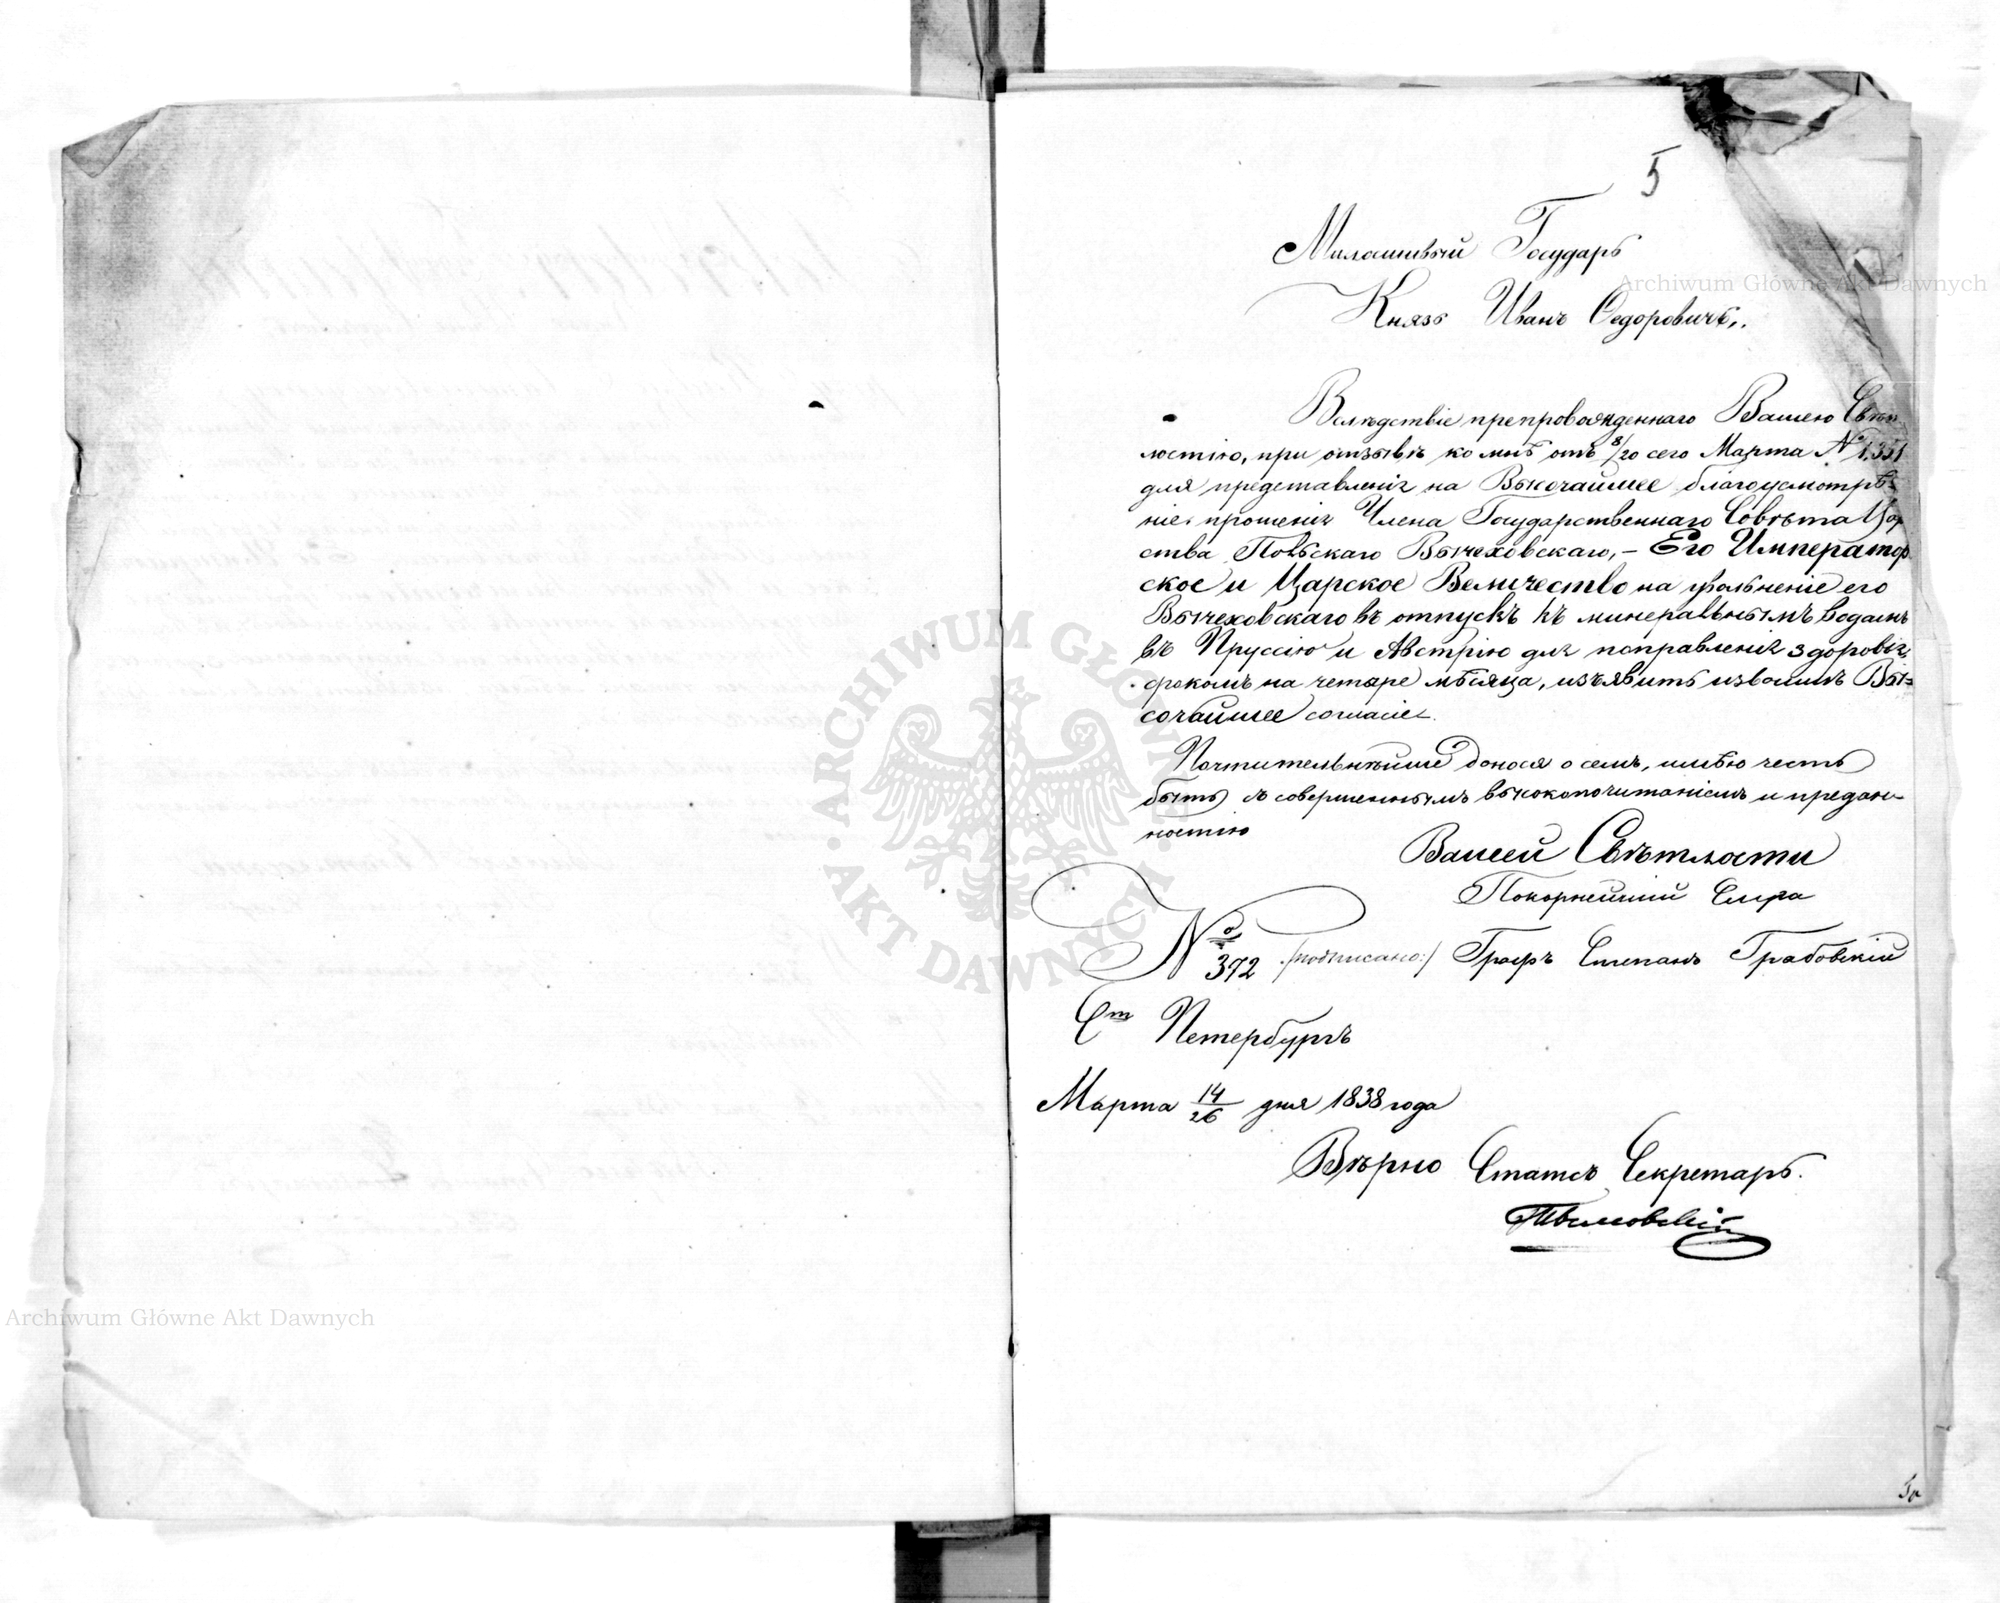 5
Милостивый Государь
Князь Иванъ Ѳедоровичъ,
Archiwum Główne Akt Dawnych
Вслѣдствіе препровожденнаго Вашею Свѣт
лостію, при отзывѣ ко мнѣ отъ 8/20 сего Марта № 1,351
для представленія на Высочайшее благоусмотрѣ-
ніе, прошенія Члена Государственнаго Совѣта Цар
ства Польскаго Вычеховскаго, – Его Император
ское и Царское Величество на увольненіе его
Вычеховскаго въ отпускъ къ минеральнымъ водамъ
въ Пруссію и Австрію для поправленія здоровія,
срокомъ на четыре мѣсяца, изъявить изволилъ Вы=
сочайшее согласіе.
Почтительнѣйше донося о семъ, имѣю честь
быть съ совершеннымъ высокопочитаніемъ и предан-
ностію
Вашей Свѣтлости
Покорнейшій Слуга
№ 372 /подписано:/ Графъ Степанъ Грабовскій
Ст Петербургъ
Марта 14/26 дня 1838 года
Вѣрно Статсъ Секретарь.
Archiwum Główne Akt Dawnych
ARCHIWUM GŁÓWNE AKT DAWNYCH